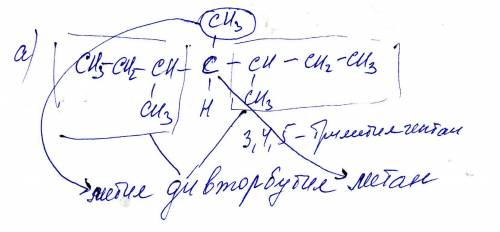 CH₃
а) CH₃–CH₂–CH–C–CH–CH₂–CH₃
CH₃ H CH₃
3,4,5-триметилгептан
метил дивторбутил метан